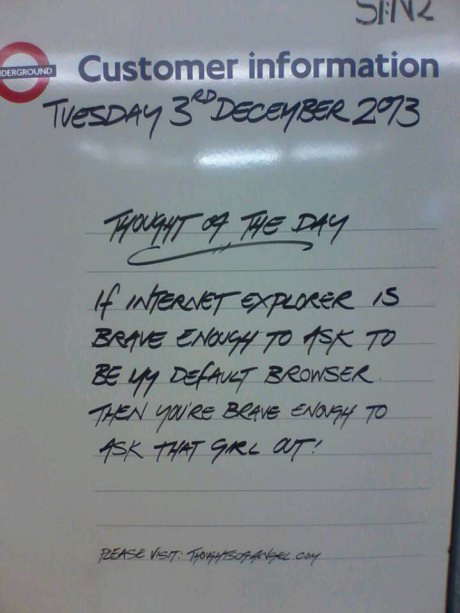 UNDERGROUND
Customer information
TUESDAY 3RD DECEMBER 2013
THOUGHT OF THE DAY
If INTERNET EXPLORER IS
BRAVE ENOUGH TO ASK TO
BE MY DEFAULT BROWSER
THEN YOU'RE BRAVE ENOUGH TO
ASK THAT GIRL OUT!
PLEASE VISIT: THOUGHTSOFANGEL.COM